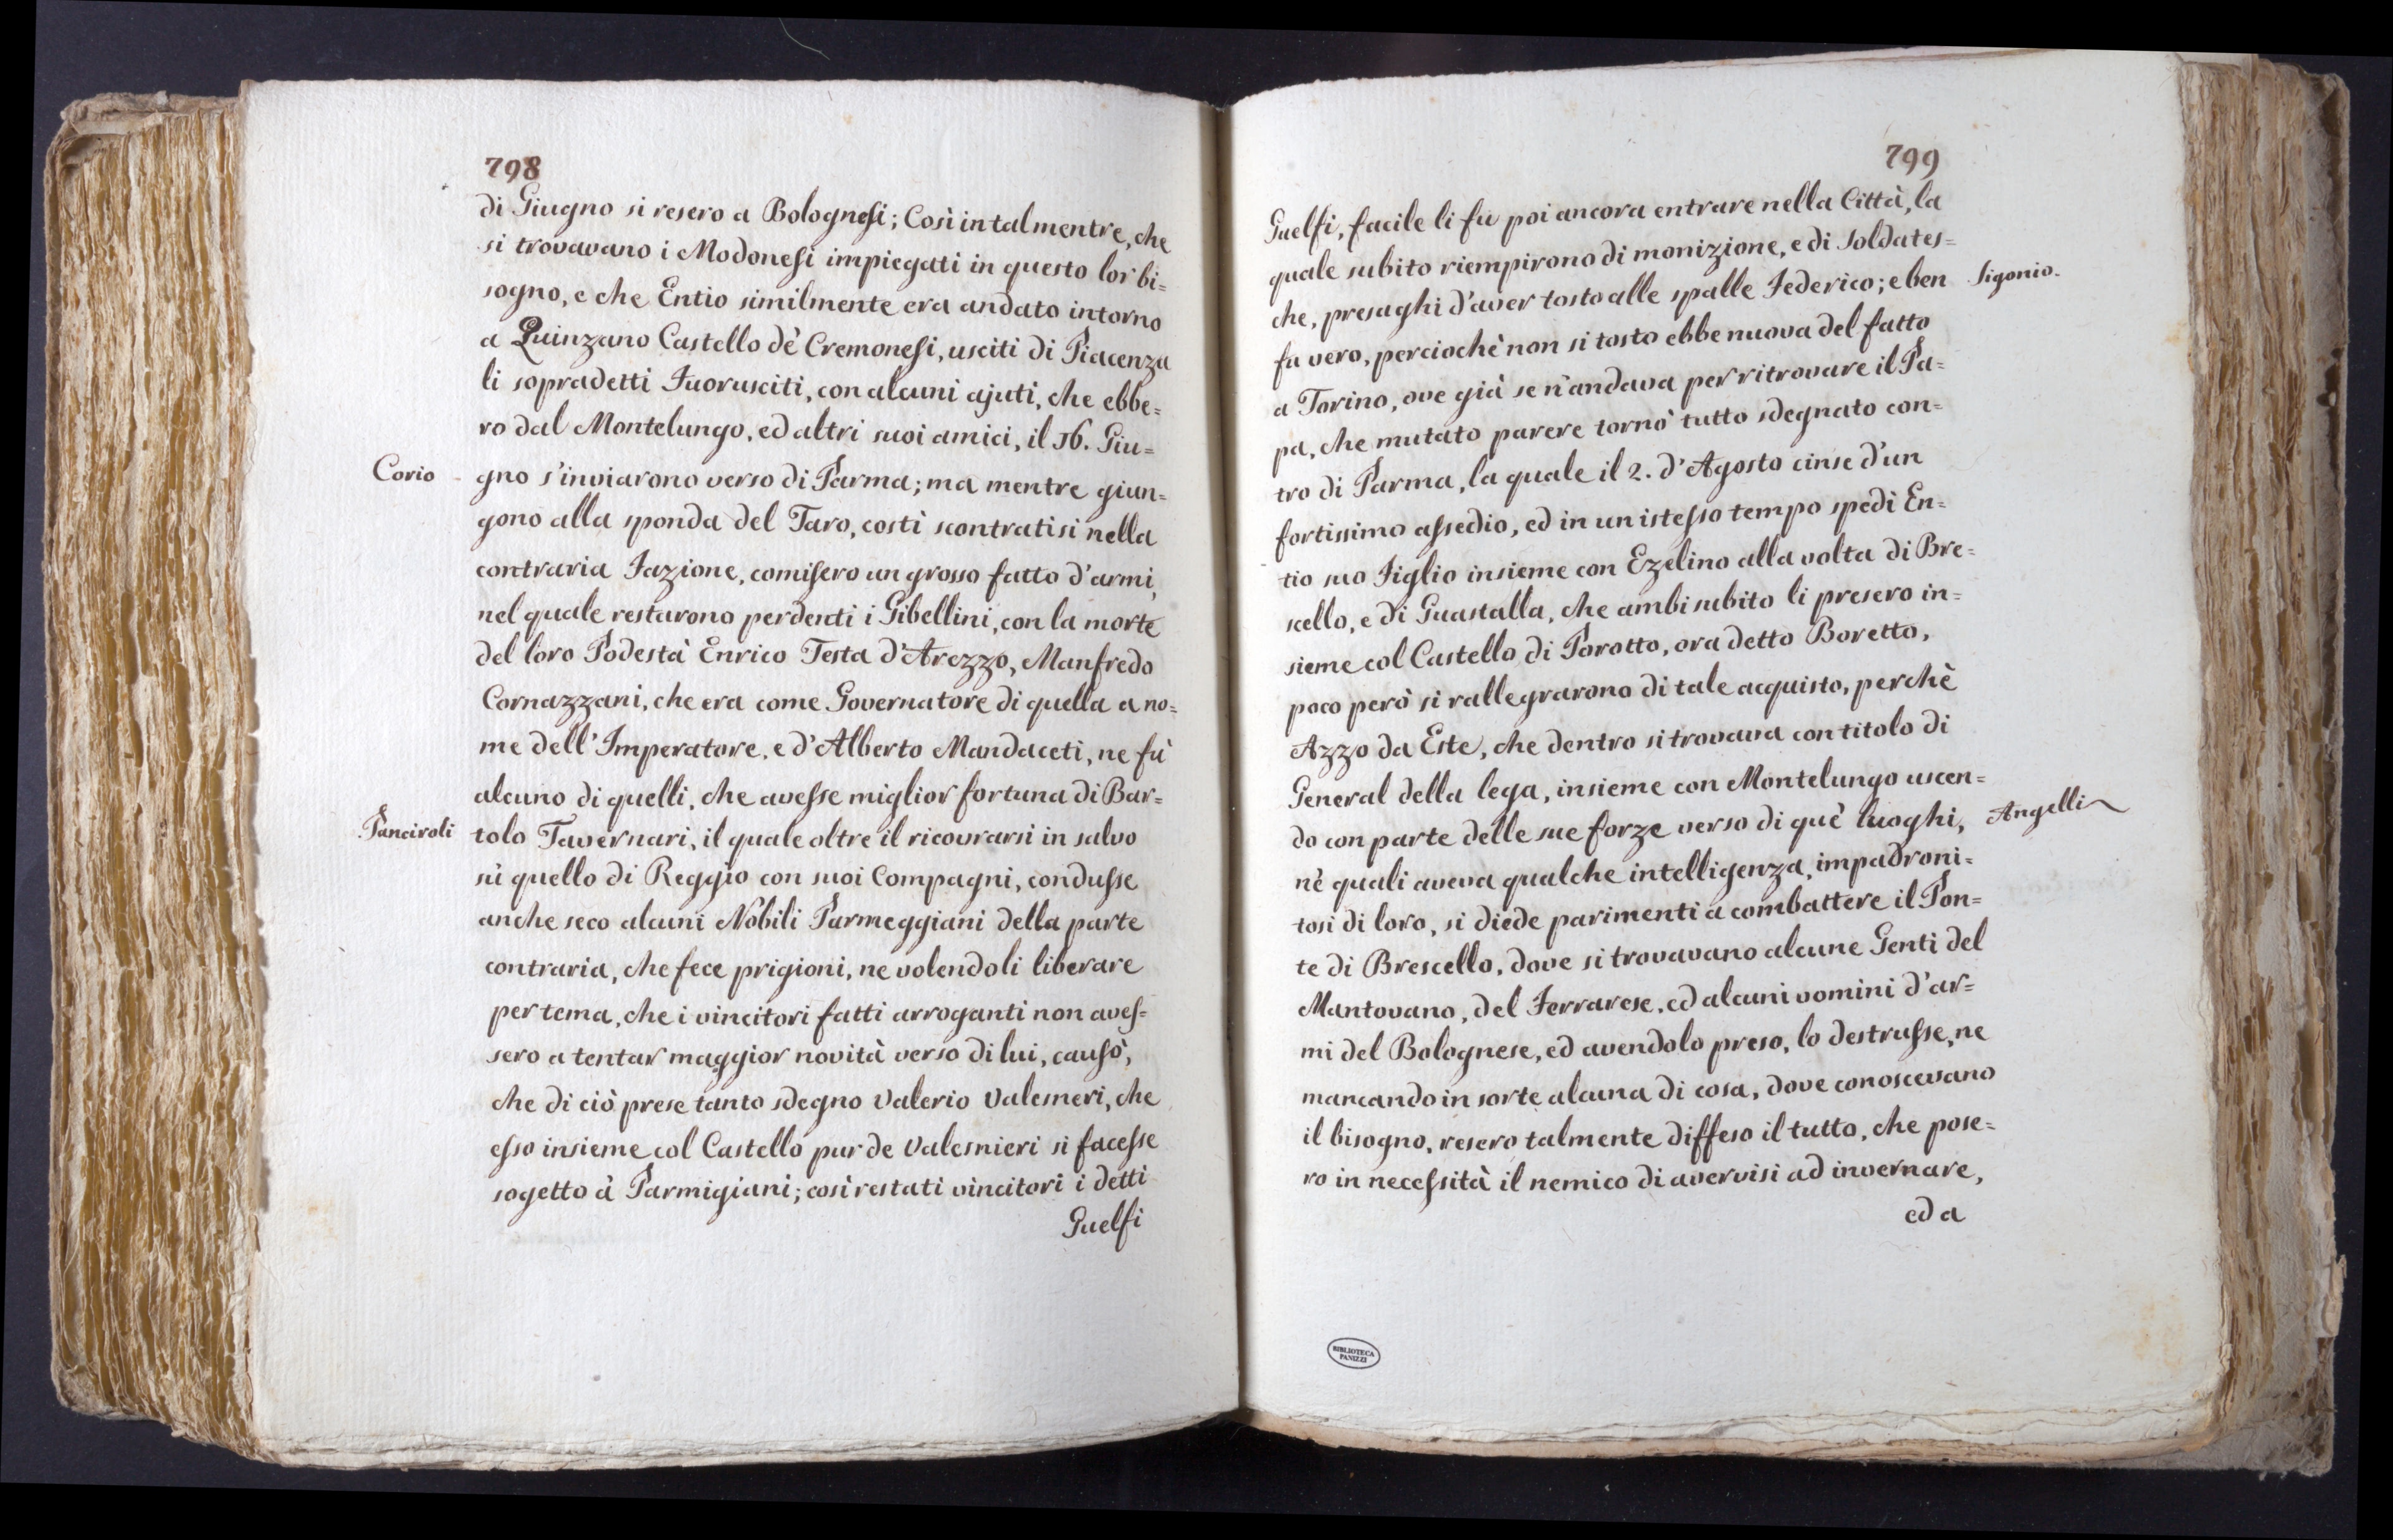 798
di Giugno si resero a Bolognesi; Così in tal mentre, che
si trovavano i Modonesi impiegati in questo lor bi=
sogno, e che Entio similmente era andato intorno
a Quinzano Castello dè Cremonesi, usciti di Piacenza
li sopradetti Fuorusciti, con alcuni ajuti, che ebbe=
ro dal Montelungo, ed altri suoi amici, il 16. Giu=
Corio
gno s'inviarono verso di Parma; ma mentre giun=
gono alla sponda del Taro, costì scontratisi nella
contraria Fazione, comisero un grosso fatto d'armi,
nel quale restarono perdenti i Gibellini, con la morte
del loro Podestà Enrico Testa d'Arezzo, Manfredo
Cornazzani, che era come Governatore di quella a no=
me dell'Imperatore, e d'Alberto Mandaceti, ne fù
alcuno di quelli, che avesse miglior fortuna di Bar=
Panciroli
tolo Tavernari, il quale oltre il ricovrarsi in salvo
sù quello di Reggio con suoi Compagni, condusse
anche seco alcuni Nobili Parmeggiani della parte
contraria, che fece prigioni, ne volendoli liberare
per tema, che i vincitori fatti arroganti non aves=
sero a tentar maggior novità verso di lui, causò,
che di ciò prese tanto sdegno Valerio Valesneri, che
esso insieme col Castello pur de Valesnieri si facesse
sogetto à Parmigiani; così restati vincitori i detti
Guelfi
799
Guelfi, facile li fù poi ancora entrare nella Città, la
quale subito riempirono di monizione, e di soldates=
che, presaghi d'aver tosto alle spalle Federico; e ben
Sigonio.
fu vero, perciochè non si tosto ebbe nuova del fatto
a Torino, ove già se n'andava per ritrovare il Pa=
pa, che mutato parere tornò tutto sdegnato con=
tro di Parma, la quale il 2. d'Agosto cinse d'un
fortissimo assedio, ed in un istesso tempo spedì En=
tio suo Figlio insieme con Ezelino alla volta di Bre=
scello, e di Guastalla, che ambi subito li presero in=
sieme col Castello di Porotto, ora detto Boretto,
poco però si rallegrarono di tale acquisto, perchè
Azzo da Este, che dentro si trovava con titolo di
General della lega, insieme con Montelungo uscen=
do con parte delle sue forze verso di què luoghi,
Angelli
nè quali aveva qualche intelligenza, impadroni=
tosi di loro, si diede parimenti a combattere il Pon=
te di Brescello, dove si trovavano alcune Genti del
Mantovano, del Ferrarese, ed alcuni uomini d'ar=
mi del Bolognese, ed avendolo preso, lo destrusse, ne
mancando in sorte alcuna di cosa, dove conoscevano
il bisogno, resero talmente diffeso il tutto, che pose=
ro in necessità il nemico di avervisi ad invernare,
ed a
BIBLIOTECA
PANIZZI